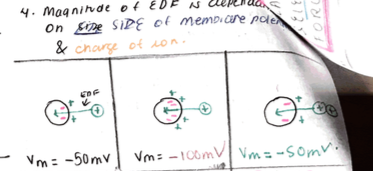 4. Magnitude of EDF is dependa
on side SIDE of membrane poten
& charge of ion.
EDF
Vm = -50mV
Vm = -100mV
Vm = -50mV.